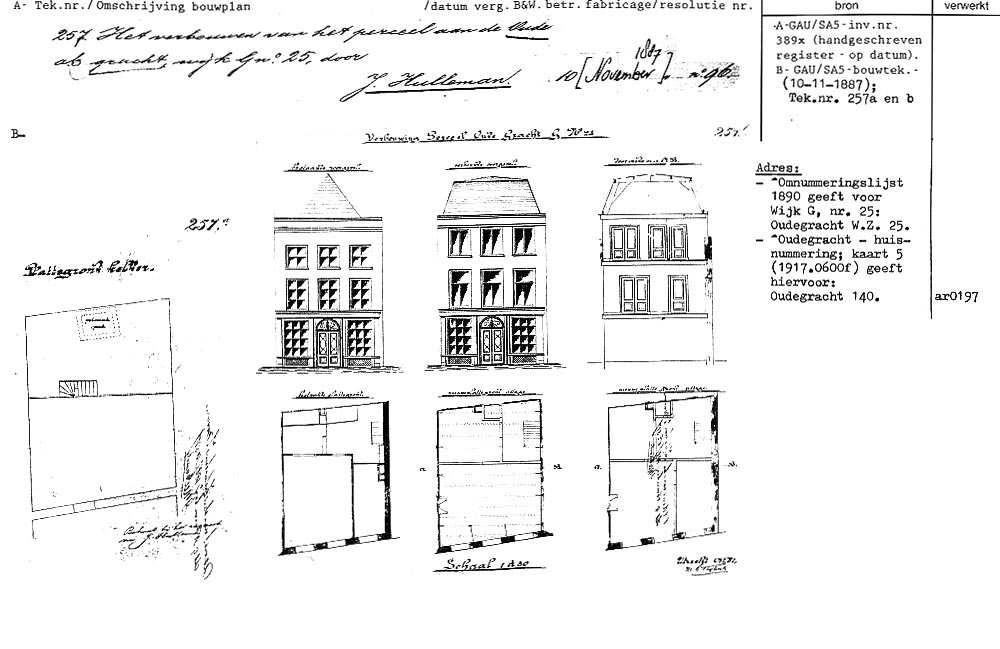 A- Tek.nr./Omschrijving bouwplan /datum verg. B&W.betr.fabricage/resolutie nr. bron verwerkt
257. Het verbouwen van het perceel aan de Oude
gracht, wijk G nº 25, door
J. Hulleman. 10 [November 1887]. nº 96
A-GAU/SA5-inv.nr.
389x (handgeschreven
register - op datum).
B- GAU/SA5-bouwtek.-
(10-11-1887);
Tek.nr. 257a en b
B-
Verbouwing Perceel Oude Gracht G Nº 25
257.ᵇ
257.ᵃ
Plattegrond kelder.
Adres:
- ^Omnummeringslijst
1890 geeft voor
Wijk G, nr. 25:
Oudegracht W.Z. 25.
- ^Oudegracht - huis-
nummering; kaart 5
(1917.0600f) geeft
hiervoor:
Oudegracht 140.
ar0197
Schaal 1 à 50
Utrecht